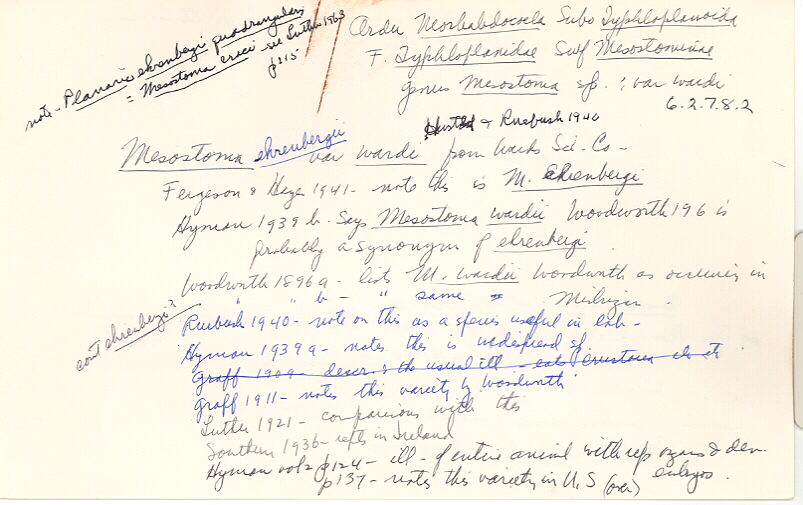 note - Planaria ehrenbergi quadrangulars
= Mesostoma craci see Luther 1963
p215
Order Neorhabdocoela Subo Typhloplanoida
F. Typhloplanidae Suf Mesostominae
genus Mesostoma sp. : var wardi
6.2.7.8.2
Husted & Ruebush 1940
Mesostoma ehrenbergii var wardi from Wards Sci. Co -
Fergeson & Hayes 1941 - note this is M. ehrenbergi
Hyman 1939 b - says Mesostoma wardii Woodworth 196 is
probably a synonym of ehrenbergi
Woodworth 1896 a - lists M. wardii Woodworth as occuring in
" " b - " same " Michigan.
cont ehrenbergi?
Ruebush 1940 - note on this as a species useful in lab -
Hyman 1939 a - notes this is widespread sp.
Graff 1909 - descr. & the usual ill - eats crustacea etc
Graff 1911 - notes this variety by Woodworth
Luther 1921 - comparisons with this
Southern 1936 - repts in Ireland
Hyman vol 2 p124 - ill - of entire animal with rep organs & dev.
embryos.
p 137 - notes this variety in U.S (over)